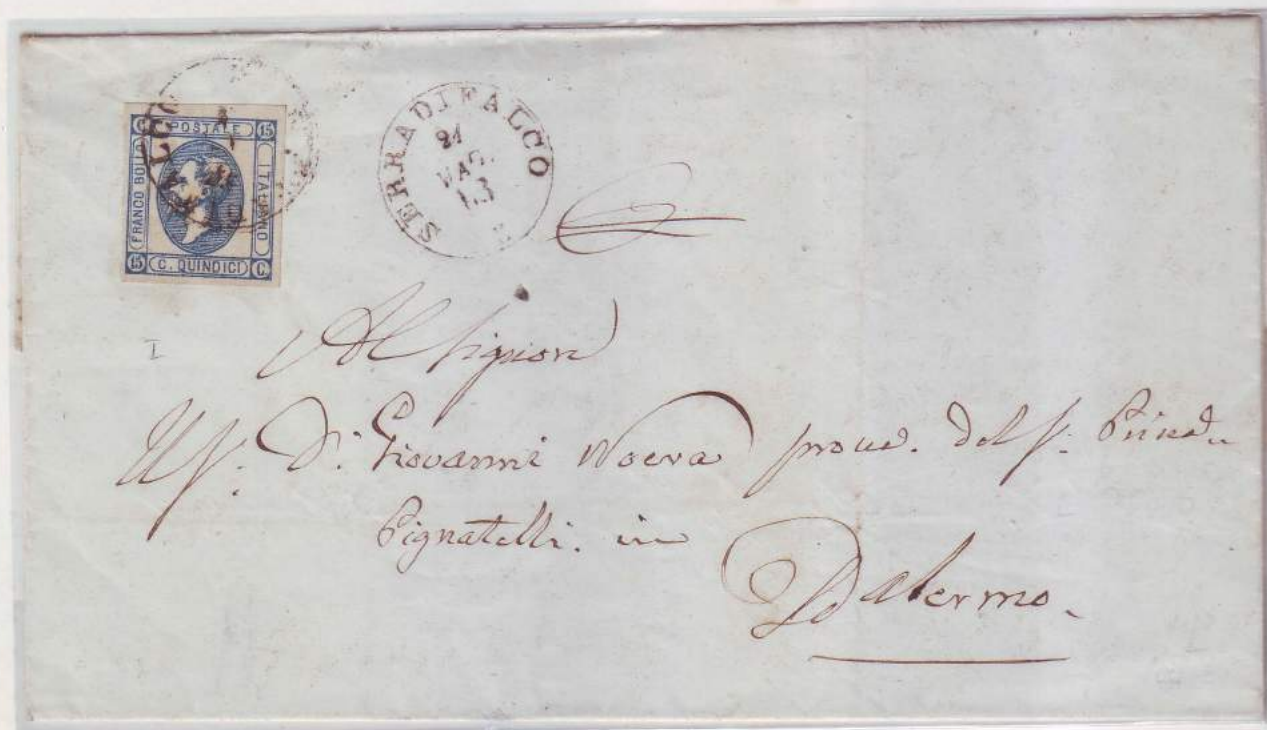 C. POSTALE 15
FRANCO BOLLO
ITALIANO
15 C. QUINDICI C.
SERRADIFALCO
21
MAG
63
Al Signore
D. Giovanni Nocera del
Pignatelli. in
Palermo.
I